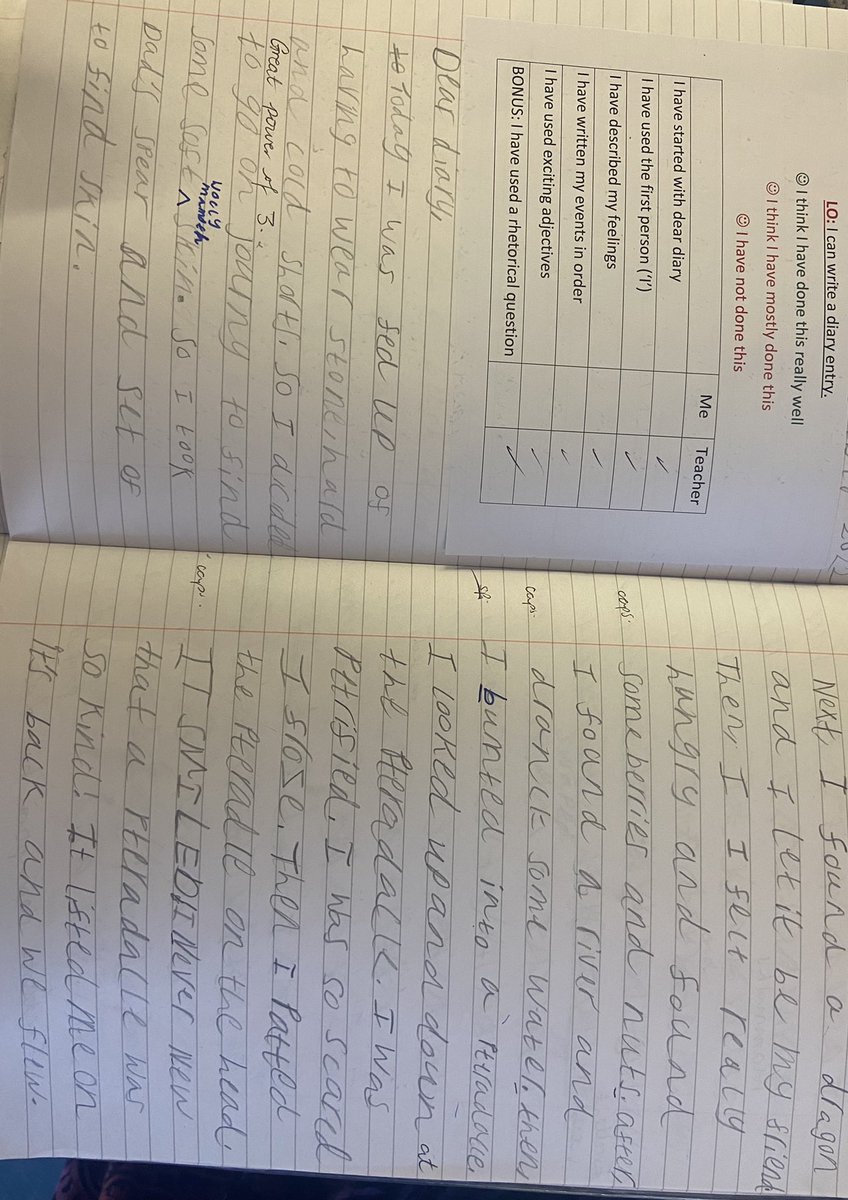 LO: I can write a diary entry.
☺ I think I have done this really well
☺ I think I have mostly done this
☺ I have not done this
Me Teacher
I have started with dear diary ✓
I have used the first person ('I') ✓
I have described my feelings ✓
I have written my events in order ✓
I have used exciting adjectives ✓
BONUS: I have used a rhetorical question ✓
Dear diary,
to Today I was fed up of
having to wear stone, hard
and cold shorts. So I dicded
Great power of 3.
to go on journy to find
wooly
mamoth
some soft ^ skin. So I took
Dad's spear and set of
to find skin.
Next, I found a dragon
and I let it be my friend
Then, I I felt really
hungry and found
caps.
some berries and nuts. after,
I found a river and
caps.
dranck some water. then,
sp.
I bunted into a Pteradacle.
I looked up and down at
the Pteradalle. I was
Petrified. I was so scared
I froze. Then I Patted
the Pteradle on the head.
caps.
IT SMILED! I Never New
that a Pteradalle was
so kind! It lifted me on
it's back and we flew.